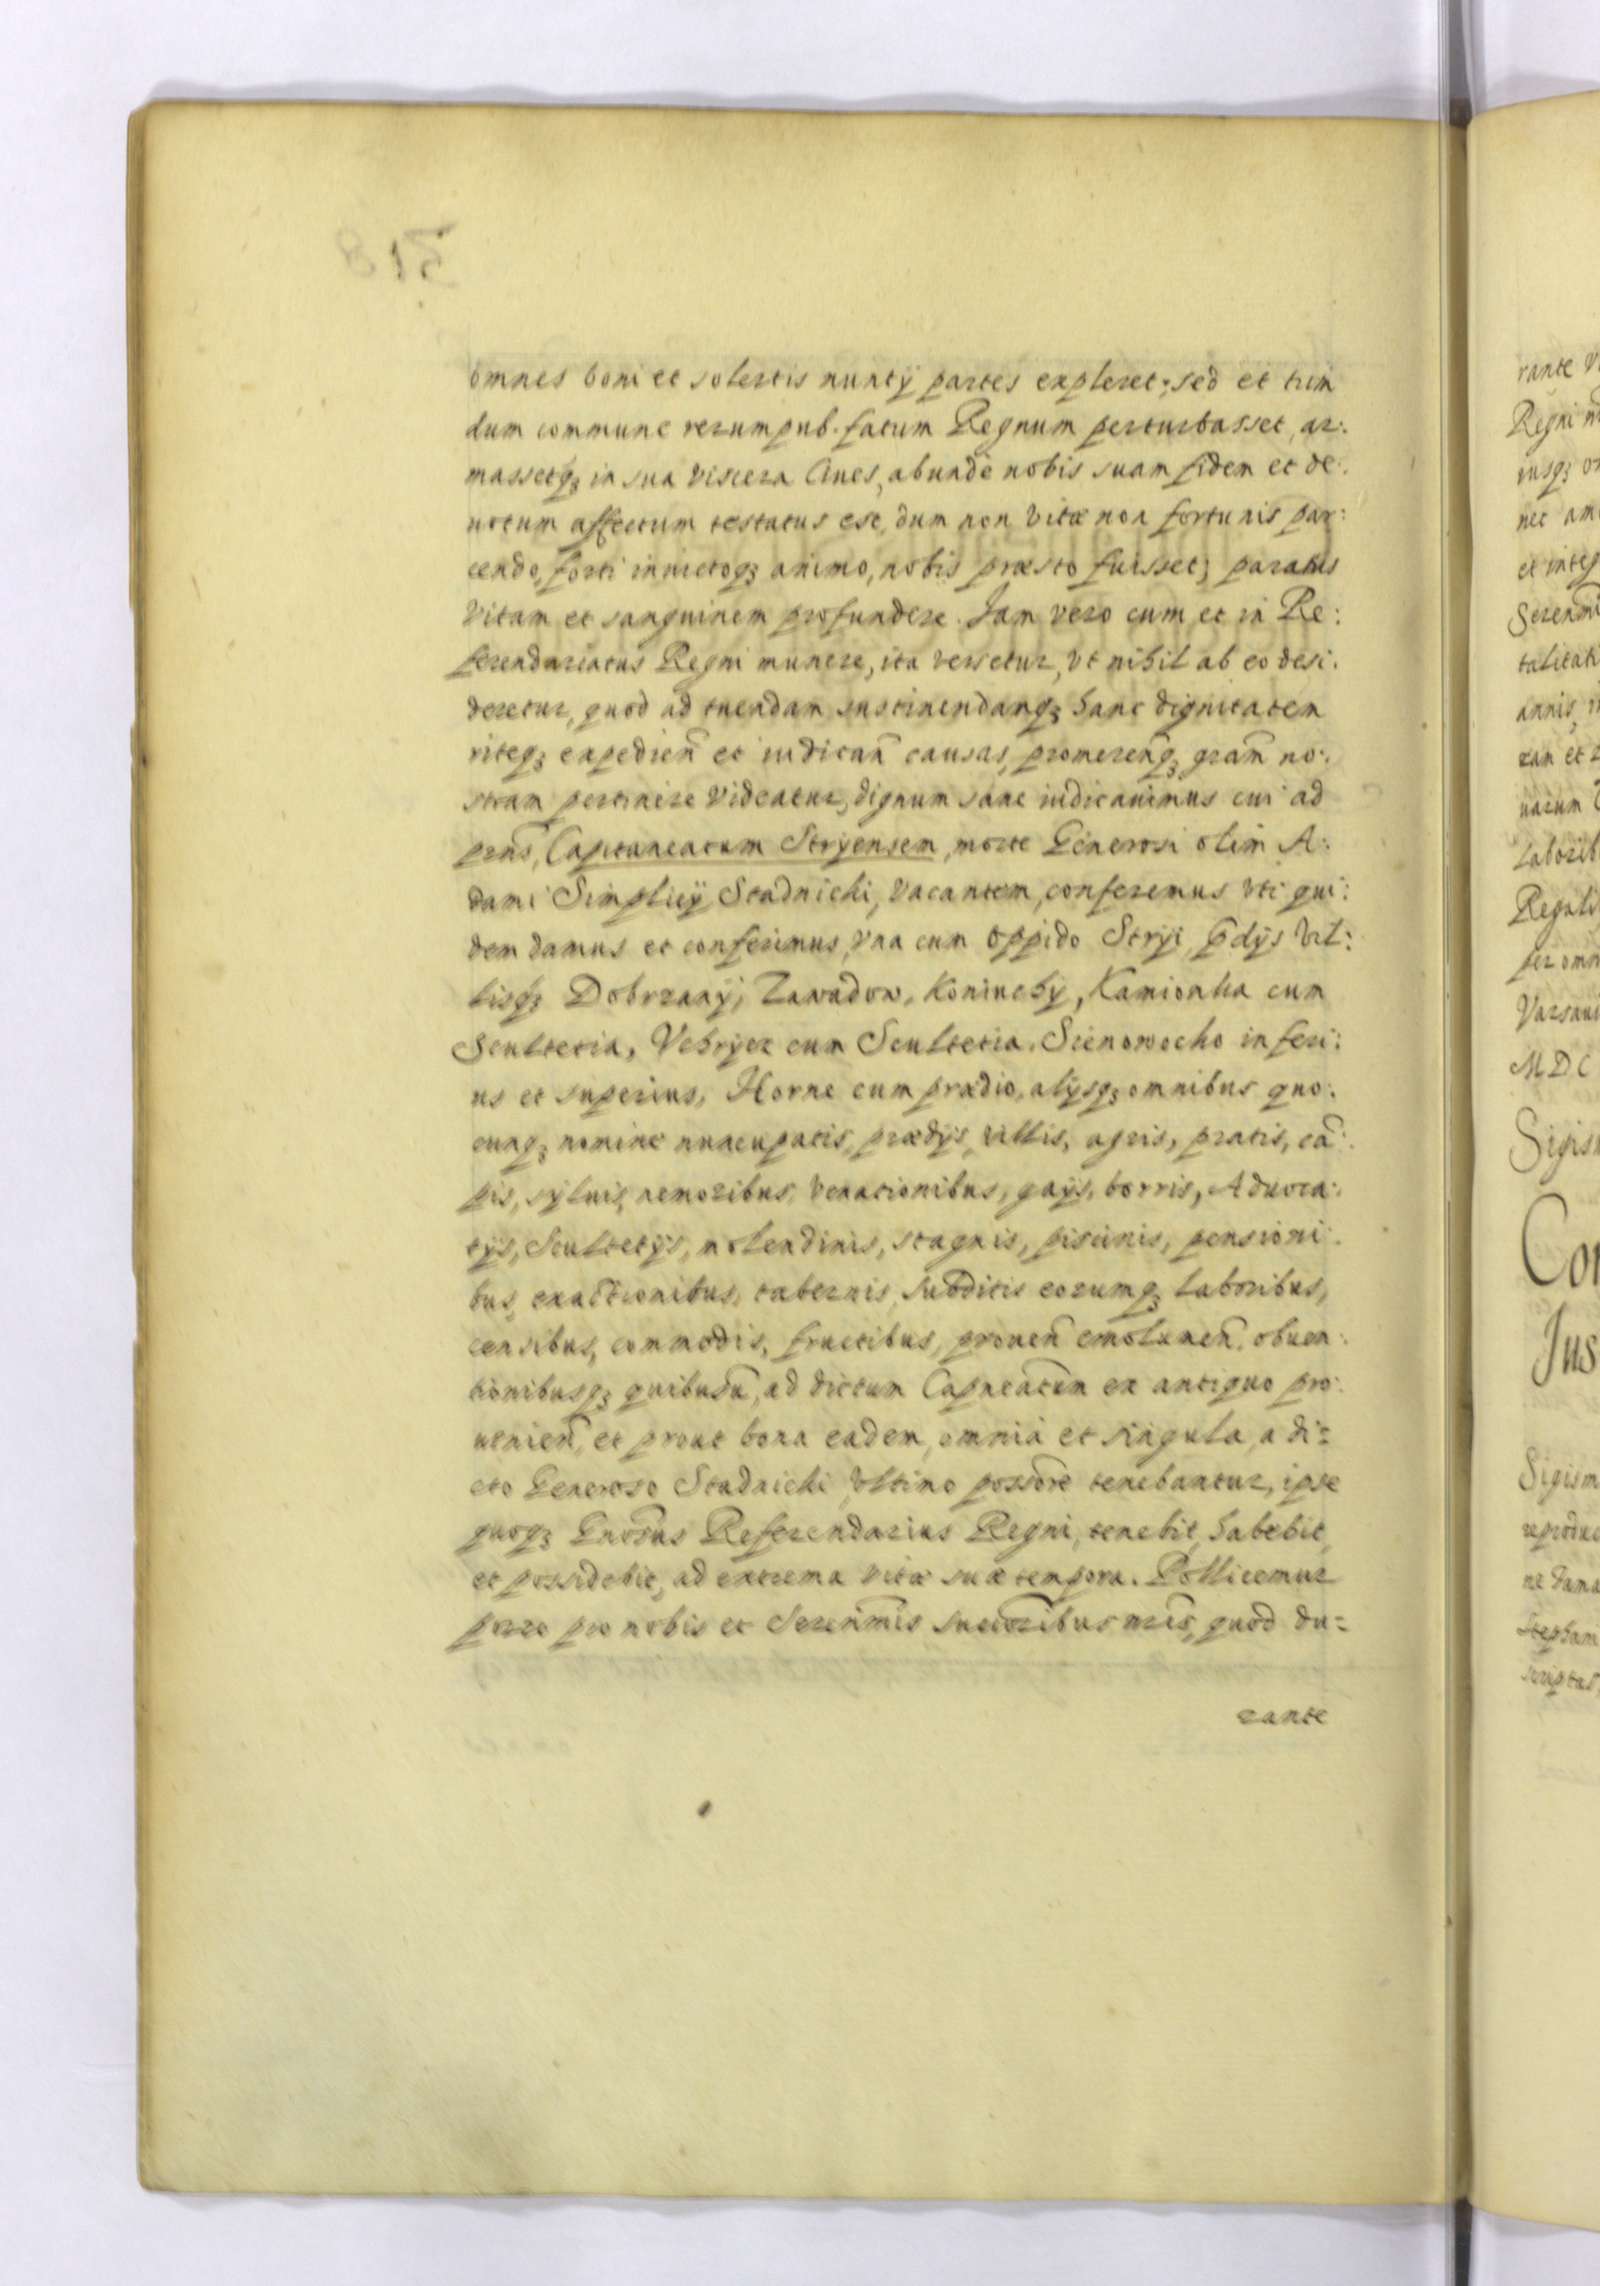 omnes boni et solertis nuntÿ partes expleret, sed et tum
dum commune rerumpub. fatum Regnum perturbasset, ar:
massetq₃ in sua viscera Ciues, abunde nobis suam fidem et de:
uotum affectum testatus est, dum non vitæ non fortunis par:
cendo, forti inuictoq₃ animo, nobis præsto fuisset; paratus
vitam et sanguinem profundere. Jam vero cum et in Re:
ferendariatus Regni munere, ita versetur, vt nihil ab eo desi:
deretur, quod ad tuendam sustinendamq₃ hanc dignitatem
riteq₃ expedien̄ et iudican̄ causas, promeren̄q₃ gram̄ no:
stram pertinere videatur, dignum sane iudicauimus cui ad
prn̄s, Capitaneatum Stryensem, morte Generosi olim A:
dami Simplicÿ Stadnicki, vacantem, conferemus vti qui:
dem damus et conferimus, vna cum oppido Stryi, p̄dÿs vil:
lisq₃ Dobrzanÿ, Zawadow, Koniuchÿ, Kamionka cum
Scultetia, Vehrÿez cum Scultetia. Sienowocko inferi:
us et superius, Horne cum prædio, alÿsq₃ omnibus quo:
cunq₃ nomine nuncupatis, prædÿs, villis, agris, pratis, cā:
pis, sÿluis, nemoribus, venationibus, gaÿs, borris, Aduoca:
tÿs, Scultetÿs, molendinis, stagnis, piscinis, pensioni:
bus, exactionibus, tabernis, subditis eorumq₃ laboribus,
censibus, commodis, fructibus, prouen̄ emolumen̄. obuen:
tionibusq₃ quibusuīs, ad dictum Capneātum ex antiquo pro:
uenien̄, et prout bona eadem, omnia et singula, a di=
cto Generoso Stadnicki vltimo possōre tenebantur, ipse
quoq₃ Gnōsus Referendarius Regni, tenebit, habebit,
et possidebit, ad extrema vitæ suæ tempora. Pollicemur
porro pro nobis et Serenm̄is succōribus nrīs, quod du=
rante